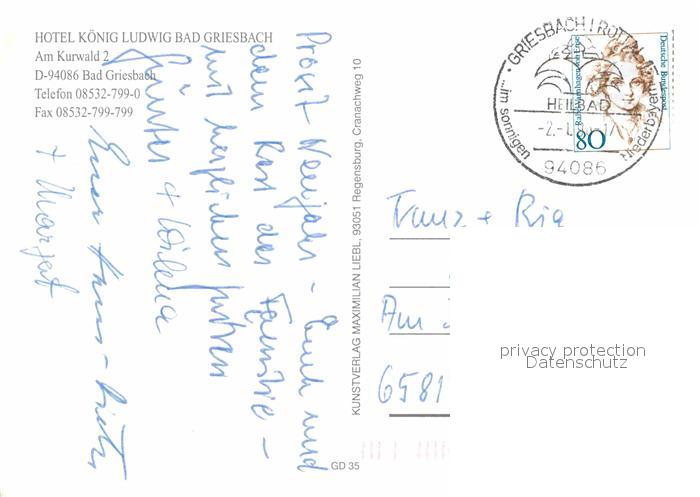 HOTEL KÖNIG LUDWIG BAD GRIESBACH
Am Kurwald 2
D-94086 Bad Griesbach
Telefon 08532-799-0
Fax 08532-799-799
Prosit Neujahr - Euch und
dem Rest der Familie -
mit herzlichen
Günter +
Euer Hans-
+ Margot
KUNSTVERLAG MAXIMILIAN LIEBL, 93051 Regensburg, Cranachweg 10
GD 35
GRIESBACH I ROTTAL
...im sonnigen Niederbayern
HEILBAD
94086
Deutsche Bundespost
Rahel Varnhagen von Ense
80
Franz + Ria
Am
6581
privacy protection
Datenschutz